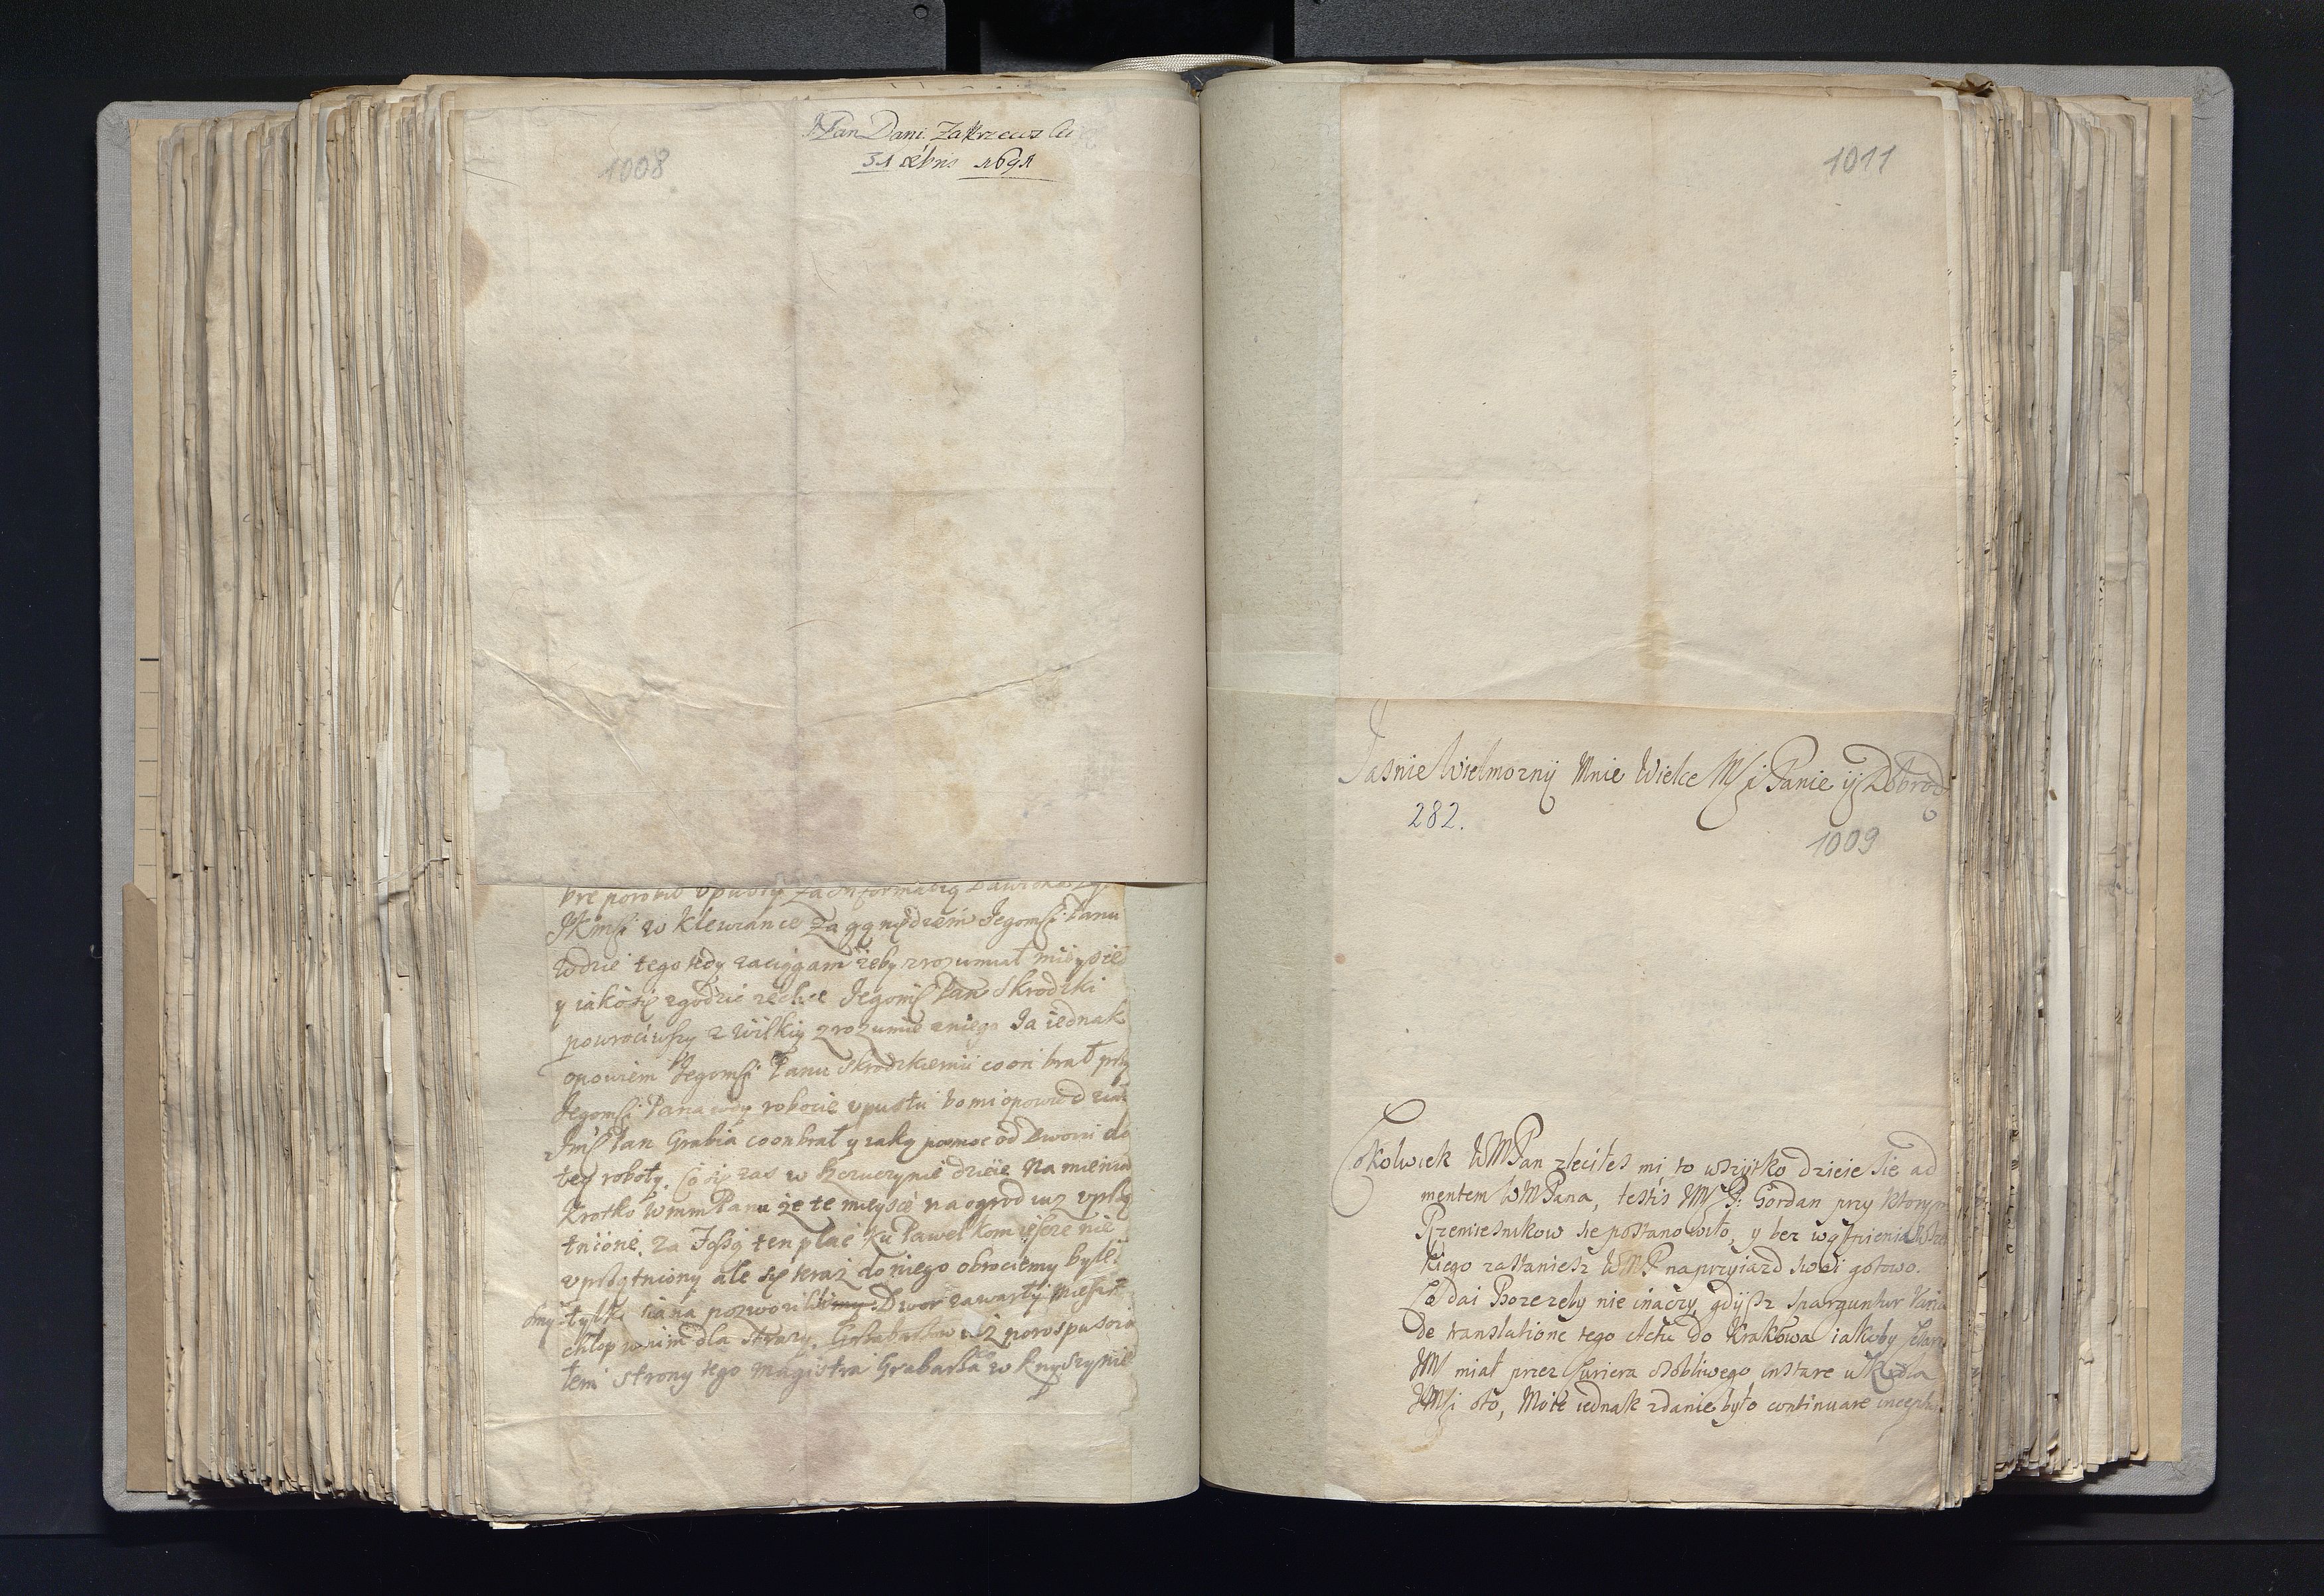 JPan Dani. Zakrzewski
31 Xbris 1691
1008
bre porobił upusty za informatią Dawidka
Jkmsi w Klewiance za gąmędzem Jegomsi Panu
wdzie tego tedy zaciągam żeby zrozumiał mieysce
y iakosię zgodzić zechce Jegoms Pan Skrodzki
powrociwszy z Wilkią zrozumie zniego Ja iednak
opowiem Jegomsi Panu Skrodzkiemu co on brał przy
Jegomsi Pana robocie upustu bo mi opowiedział
Jms Pan Grabia co on brał y iaką pomoc od Dworu do
tey roboty. Co się zas w Kruczynie dzieie Namienia
Krotko Wmm Panu że te mieysce na ogrod iuz uprzą
tnione, za Fossą ten plac ku Pawełkom ieszcze nie
uprzątniony ale się teraz do niego obrociemy byle
smy tylko siana pozwozili Dwor zawarty mieszka
chłop w nim dla strazy. Grabarzow iuż porospuscia
łem strony tego magistra Grabarza w Knyszynie
1011
Jasnie Wielmozny Mnie Wielce Msci Panie y Dobrod
282.
1009
Cokolwiek WMPan zleciłes mi to wszytko dzieie sie ad
mentem WMPana, testis JMP: Gordan przy ktorym
Rzemiesnikow sie postanowiło, y bez wątpienia wszel
kiego zastaniesz WMP na przyiazd swoi gotowo.
Co dai Boze zeby nie inaczy, gdysz sparguntur Varia
de translatione tego Actu do Krakowa iakoby Star
JM miał przez Curiera osobliwego instare u Krola
JMsi oto, Moie iednak zdanie było continuare incepta